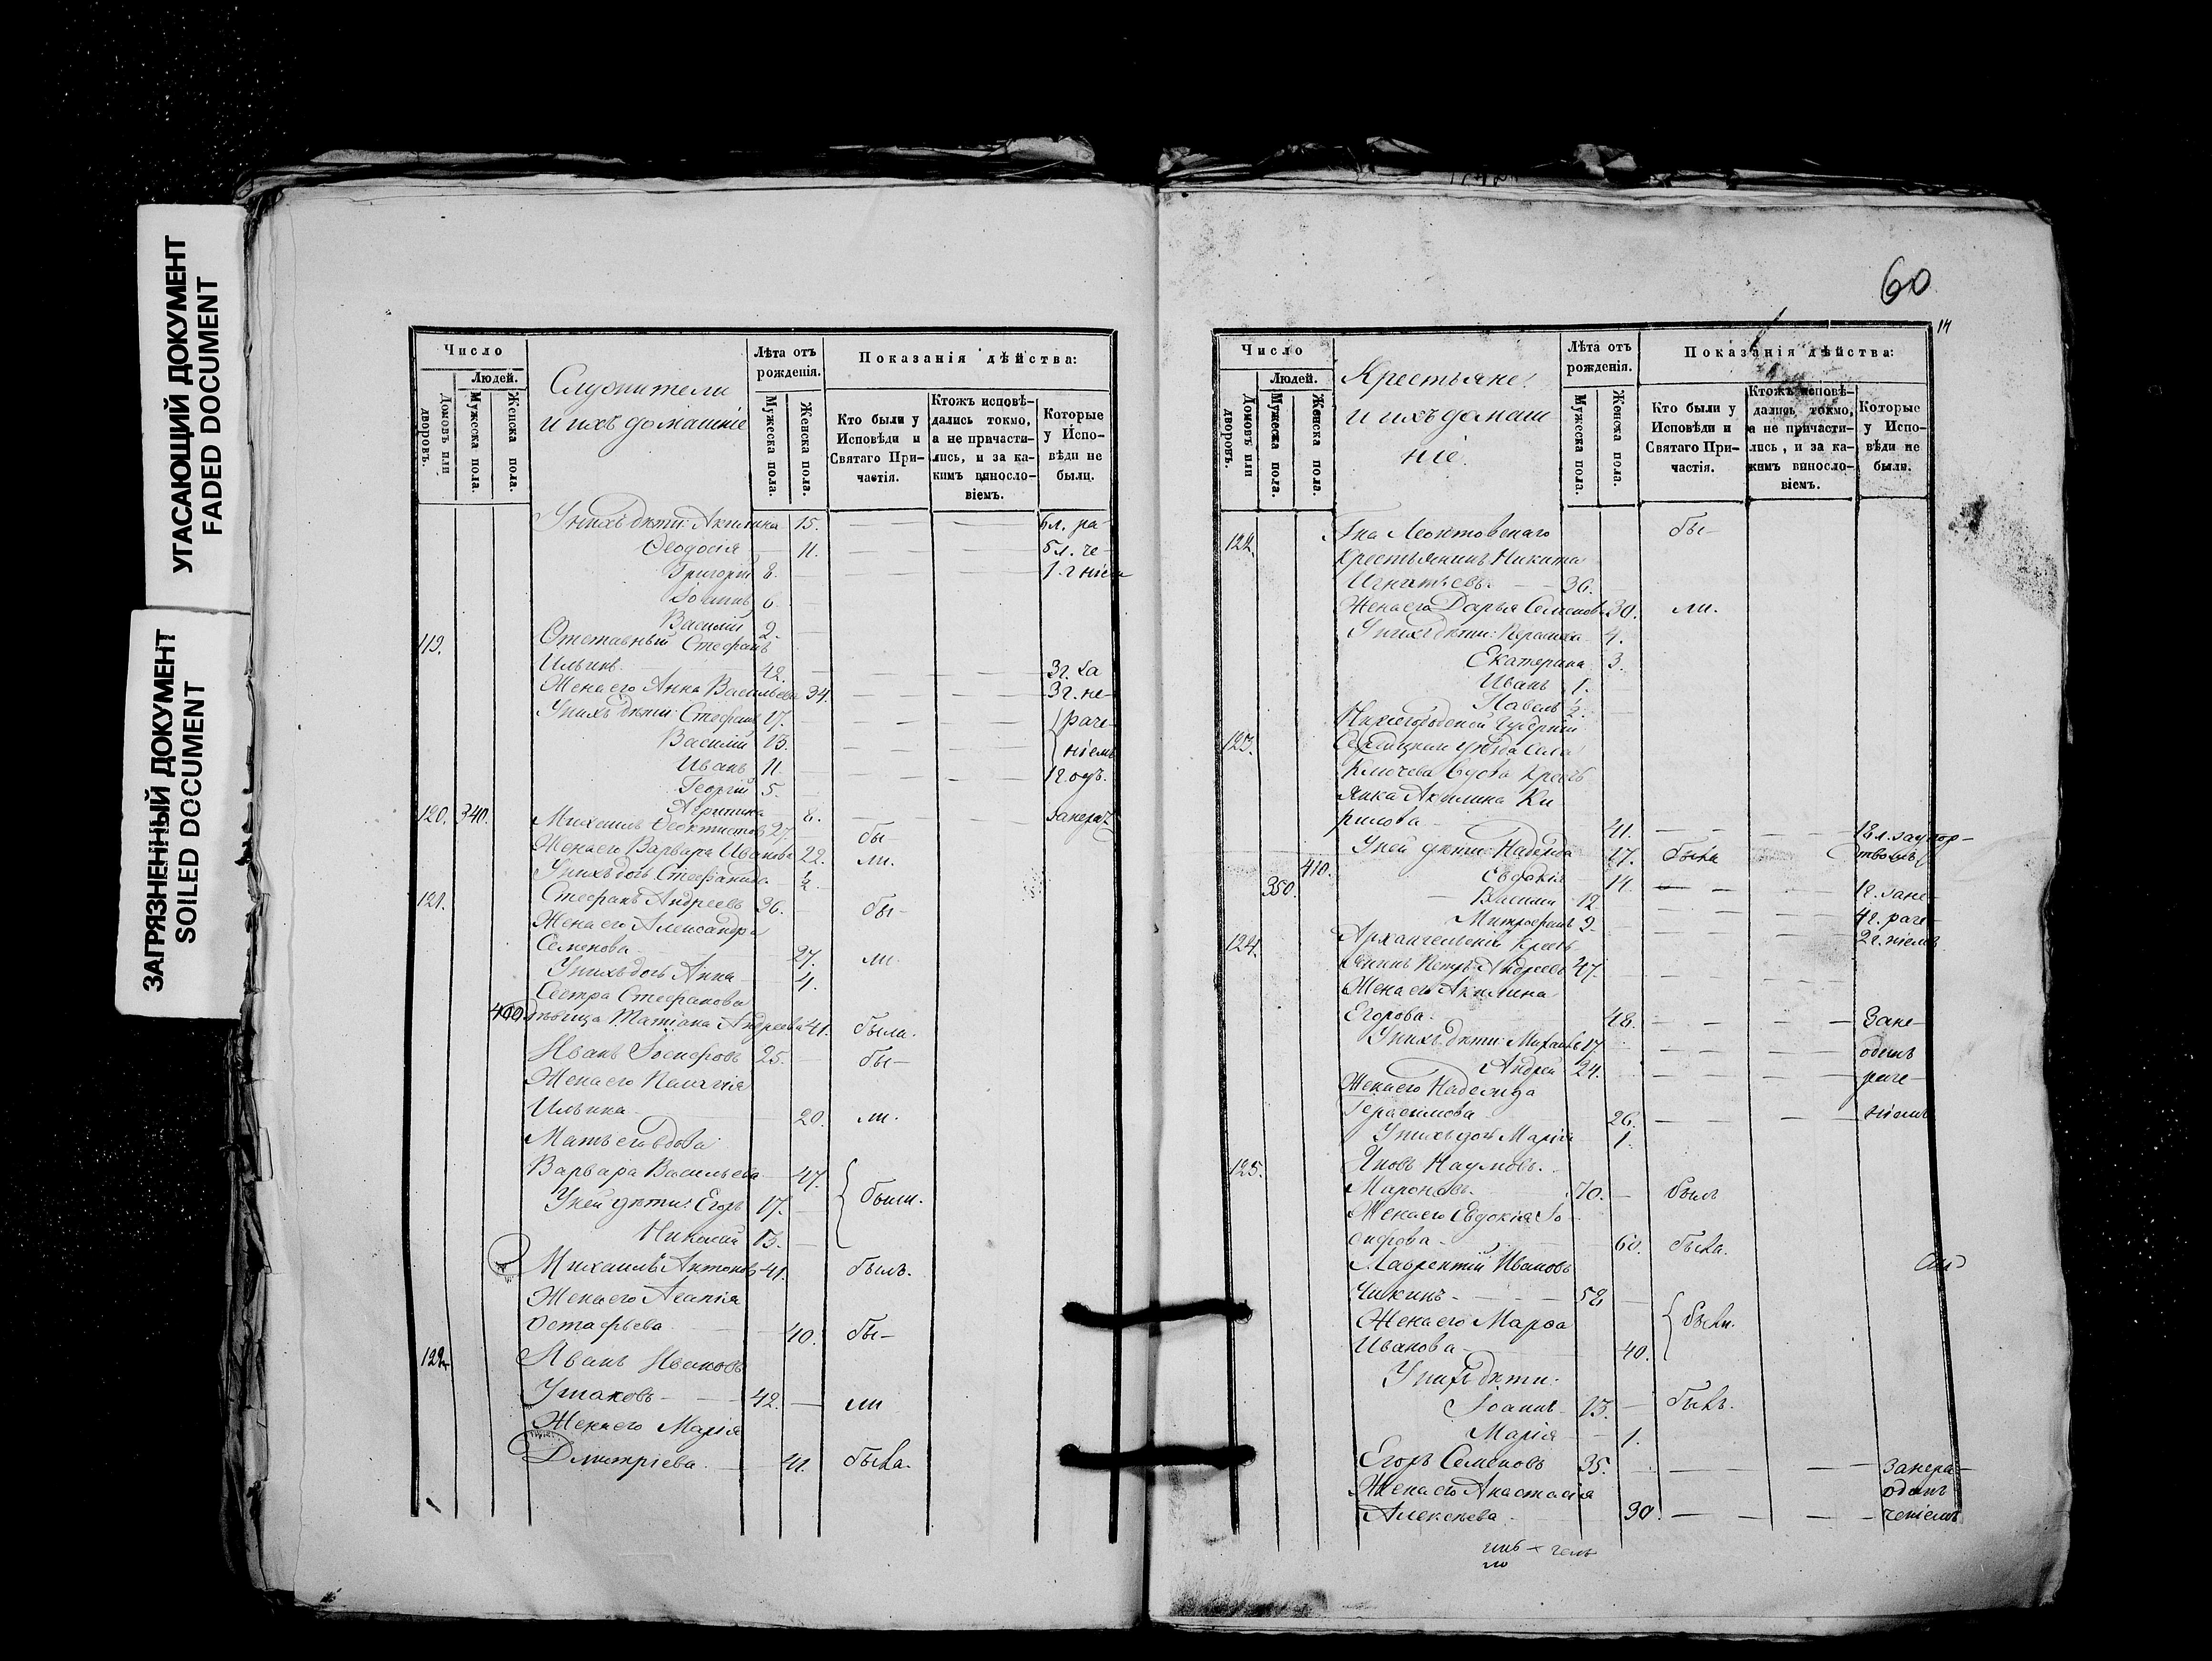 УГАСАЮЩИЙ ДОКУМЕНТ
FADED DOCUMENT
ЗАГРЯЗНЕННЫЙ ДОКУМЕНТ
SOILED DOCUMENT
Число
Людей.
Домовъ или дворовъ.
Мужеска пола.
Женска пола.
Служители
и ихъ домашніе
Лѣта отъ рожденія.
Мужеска пола.
Женска пола.
Показанія дѣйства:
Кто были у Исповѣди и Святаго Причастія.
Ктожъ исповѣдались токмо, а не причастились, и за какимъ винословіемъ.
Которые у Исповѣди не были.
У нихъ дѣти: Акилина 15. — — 6 л. ра-
Ѳеодосія 11. — — 5 л. че-
Григорій 8. — — 1. г ніем
Іоаннъ 6
Василій 2.
119. Отставный Стефанъ
Ильинъ 42. — — 3 г. за
Жена его Анна Васильева 34. — — 3 г. не-
У нихъ дѣти: Стефанъ 17. — — раче-
Василій 13. — — ніемъ
Иванъ 11. — — 1 г. одъ.
Георгій 5.
Агрипина 8. — — занерач
120. 340. Михаилъ Ѳеоктистовъ 27. бы
Жена его Варвара Иванова 22. ли.
У нихъ дочь Стефанида ½
121. Стефанъ Андреевъ 36. бы-
Жена его Александра
Семенова 27. ли.
У нихъ дочь Анна 4.
Сестра Стефанова
400 дѣвица Татіана Андреева 41. была.
Иванъ Іосифовъ 25. бы-
Жена его Пелагія
Ильина 20. ли.
Мать его вдова
Варвара Васильева 47.
У ней дѣти: Егоръ 17. были.
Николай 13.
Михаилъ Антоновъ 41. былъ.
Жена его Агапія
Остафьева 40. бы-
122. Иванъ Ивановъ
Ушаковъ 42. ли
Жена его Марія
Дмитріева. 41. была.
60
14
Число
Людей.
Домовъ или дворовъ.
Мужеска пола.
Женска пола.
Крестьяне.
и ихъ домаш
ніе.
Лѣта отъ рожденія.
Мужеска пола.
Женска пола.
Показанія дѣйства:
Кто были у Исповѣди и Святаго Причастія.
Ктожъ исповѣдались токмо, а не причастились, и за какимъ винословіемъ.
Которые у Исповѣди не были.
122. Гна Леонтовскаго бы-
Крестьянинъ Никита
Игнатьевъ. 36.
Жена его Дарья Семенова 30. ли.
У нихъ дѣти: 4.
Екатерина 3.
Иванъ 1.
Павелъ ½
Нижегородской Губерніи
123. уѣзда села
Ключева вдова Крестъ
янка Акилина Ки
рилова 41. — — 18 л. заупор-
У ней дѣти: Надежда 17. была ствомъ
410. Евдокія 14. — —
350. Василій 12 — — 1 г. зане-
Митрофанъ 9. — — 4 г. раче-
124. Архангельскій Кресть 2 г. ніемъ
янинъ Петръ Андреевъ 47.
Жена его Акилина
Егорова. 48. — — Зане-
У нихъ дѣти: Михаилъ 17. — — одинъ
Андрей 24. — — раче-
Жена его Надежда
Герасимова 26. — — ніемъ
У нихъ дочь Марія 1.
125. Яковъ Наумовъ.
Мароновъ. 70. — былъ
Жена его Евдокія Іо-
сифова 60. была.
Лаврентій Ивановъ
Чикинъ 58
Жена его Марѳа были.
Иванова 40.
У нихъ дѣти:
Іоаннъ 13. — былъ.
Марія 1.
Егоръ Семеновъ 35. — — Занера-
Жена его Анастасія одинъ
Алексѣева 30. — — ченіемъ